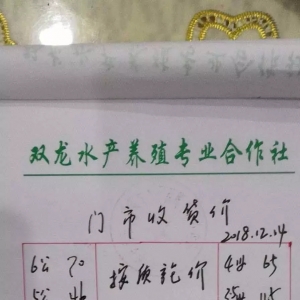 双龙水产养殖专业合作社
门市收货价
2018.12.14
6公 70 按质论价 4母 65